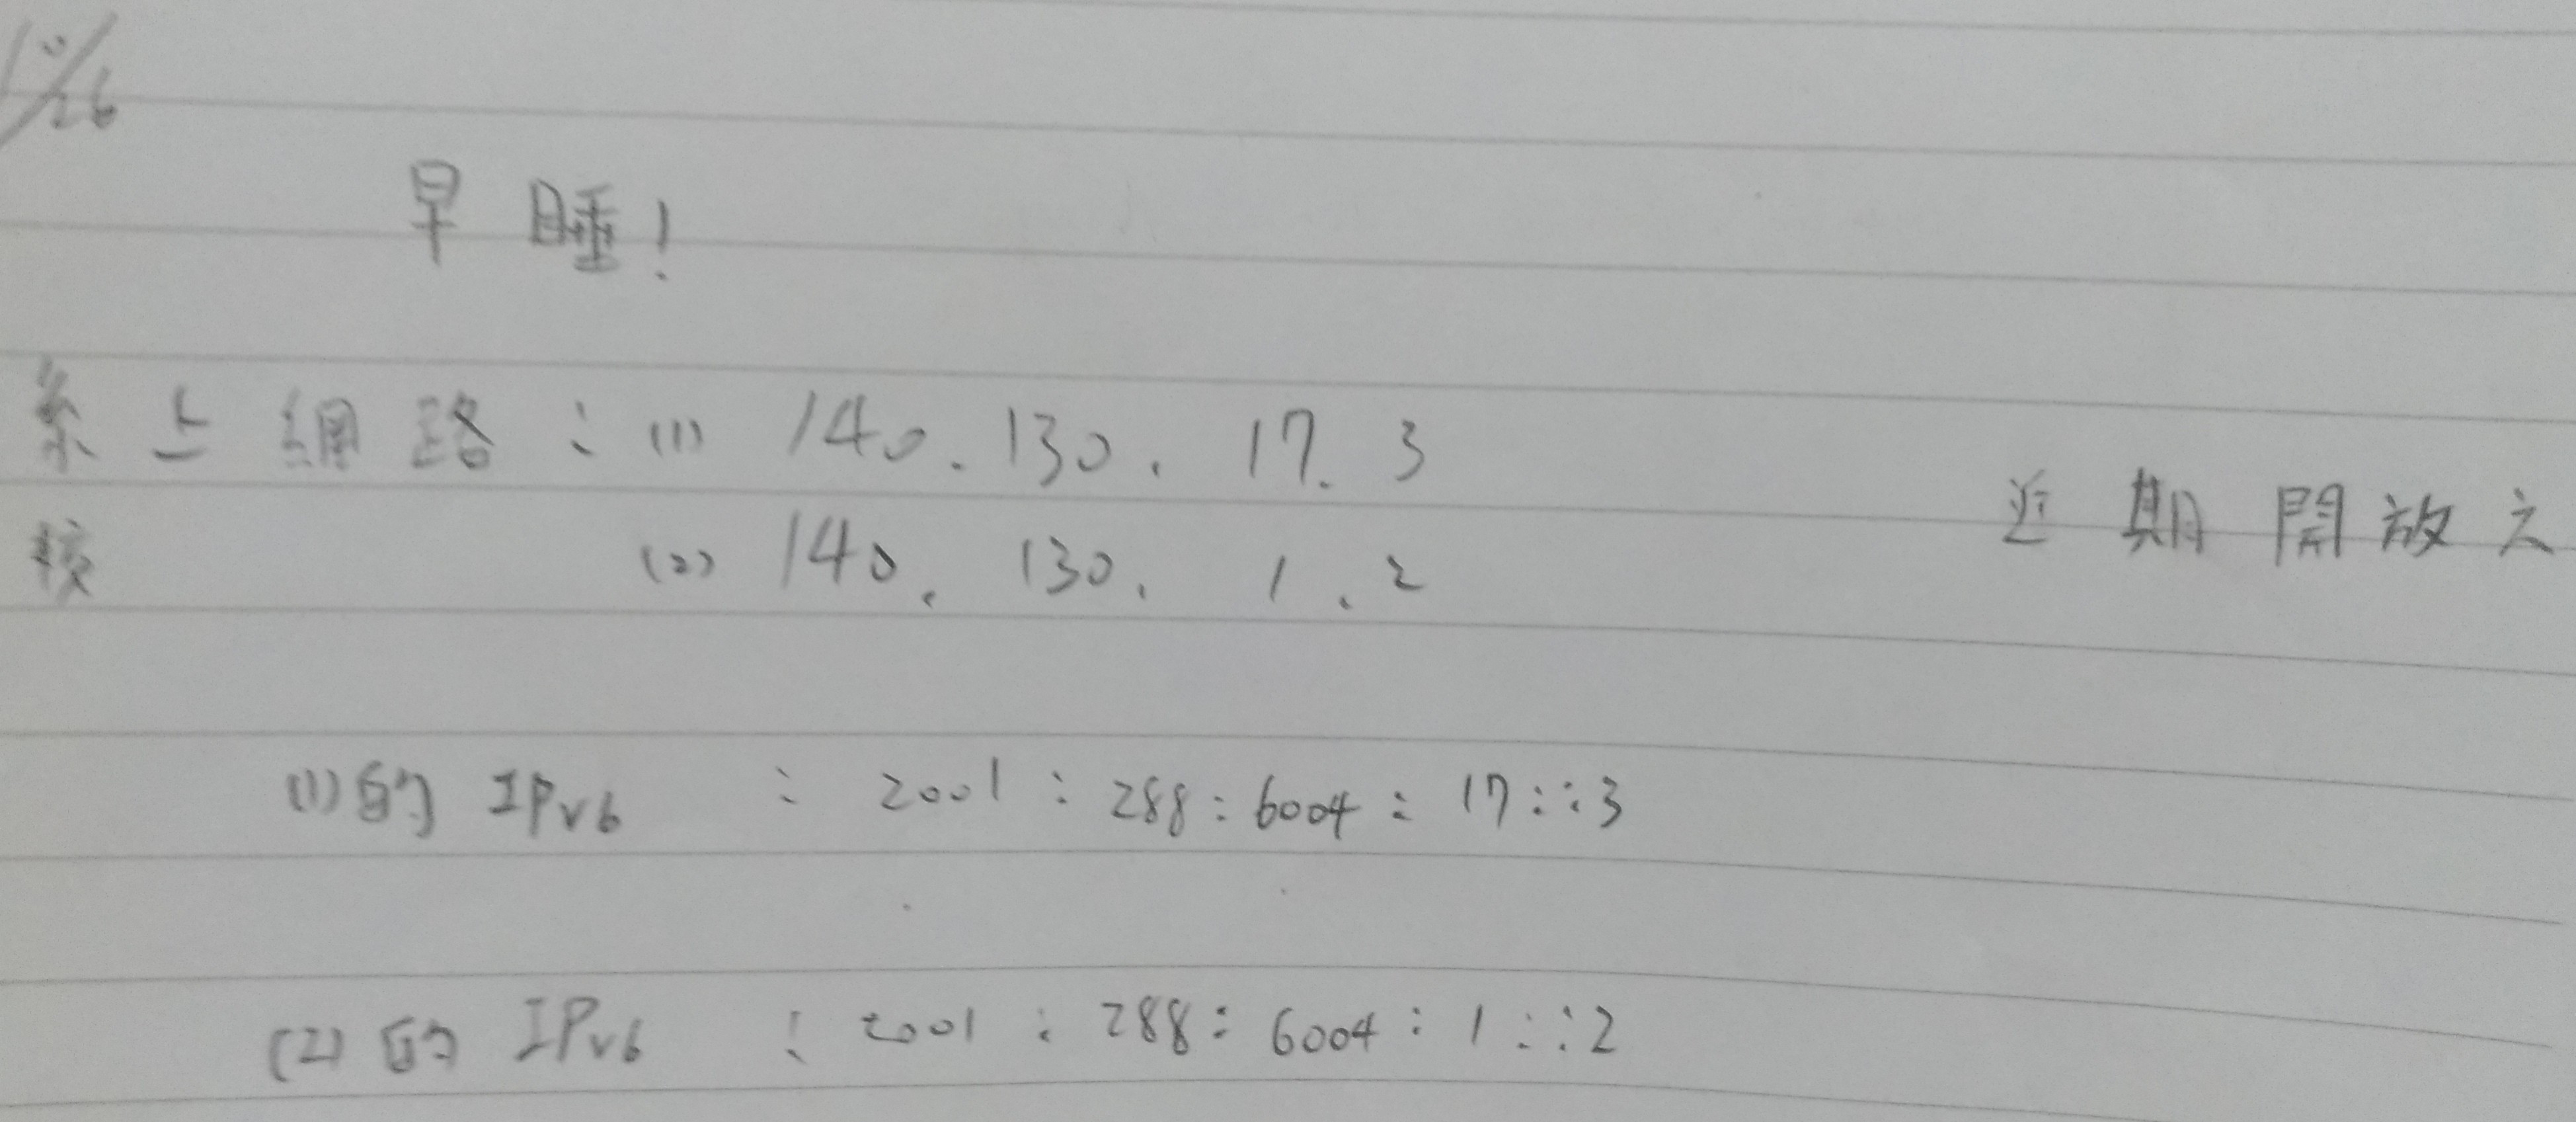 10/26
早睡!
系上網路:(1) 140.130.17.3
近期開放之
校 (2) 140.130.1.2
(1)的 IPv6 : 2001:288:6004:17::3
(2)的 IPv6 : 2001:288:6004:1::2